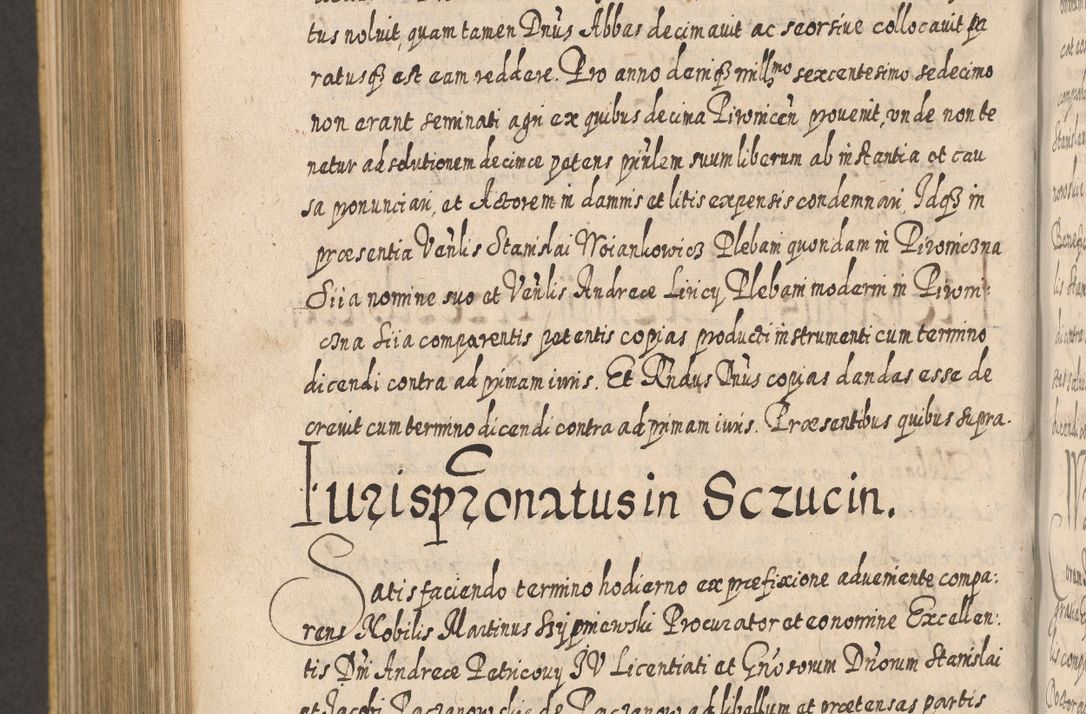 tus noluit, quam tamen Dnus Abbas decimauit ac seorsiue collocauit pa
ratusq3 est eam reddere. Pro anno deniq3 millmo sexcentesimo sedecimo
non erant seminati agri ex quibus decima Piwnicen prouenit, vnde non te
netur ad solutionem decimae petens prntem suum liberum ab instantia et cau
sa pronunciari, et Actorem in damnis et litis expensis condemnari, Idq3 in
praesentia Venlis Stanislai Woiankowicz Plebani quondam in Piwniczna
Siia nomine suo et Venlis Andreae Lincy, Plebani moderni in Piwni:
czna Siia comparentis petentis copias producti instrumenti cum termino
dicendi contra ad primam iuris. Et Rndus Dnus copias dandas esse de
creuit cum termino dicendi contra ad primam iuris. Praesentibus quibus supra.
Iurispronatus in Sczucin.
Satisfaciendo termino hodierno ex praefixione adueniente compa:
rens Nobilis Martinus Procurator et eo nomine Excellen:
tis Dni Andreae Petricouy IV Licentiati et Gnosorum Dnorum Stanislai
et Jacobi Paczanowskie de Paczanow ad libellum et praetensas partis